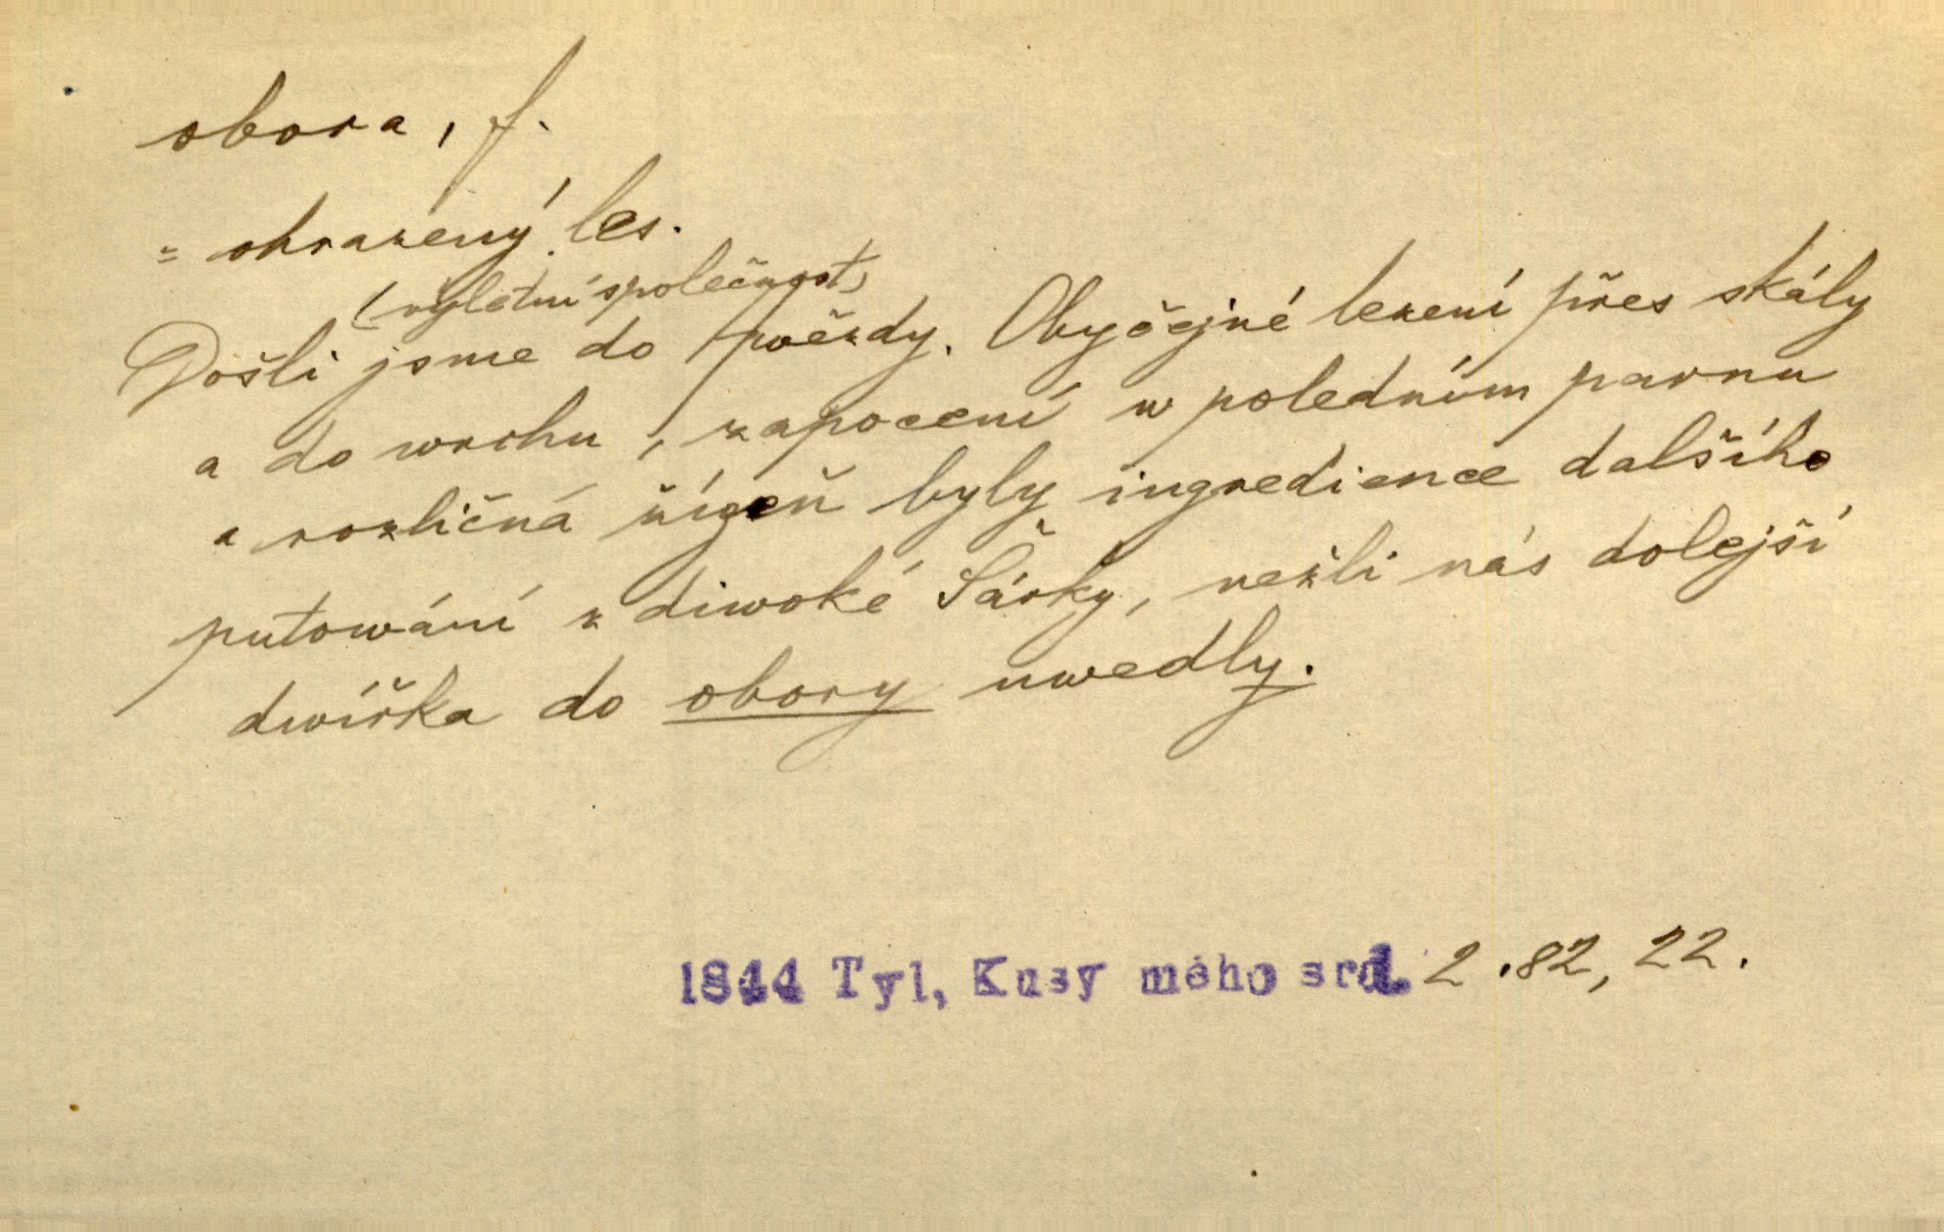 obora, f.
= ohrazený les.
(výletní společnost)
Došli jsme do Hvězdy. Obyčejné lezení přes skály
a do wrchu, zapocení w poledním parnu
a rozličná žízeň byly ingredience dalšího
putowání z diwoké Šárky, nežli nás dolejší
dwířka do obory uwedly.
1844 Tyl, Kusy mého srd. 2.82, 22.